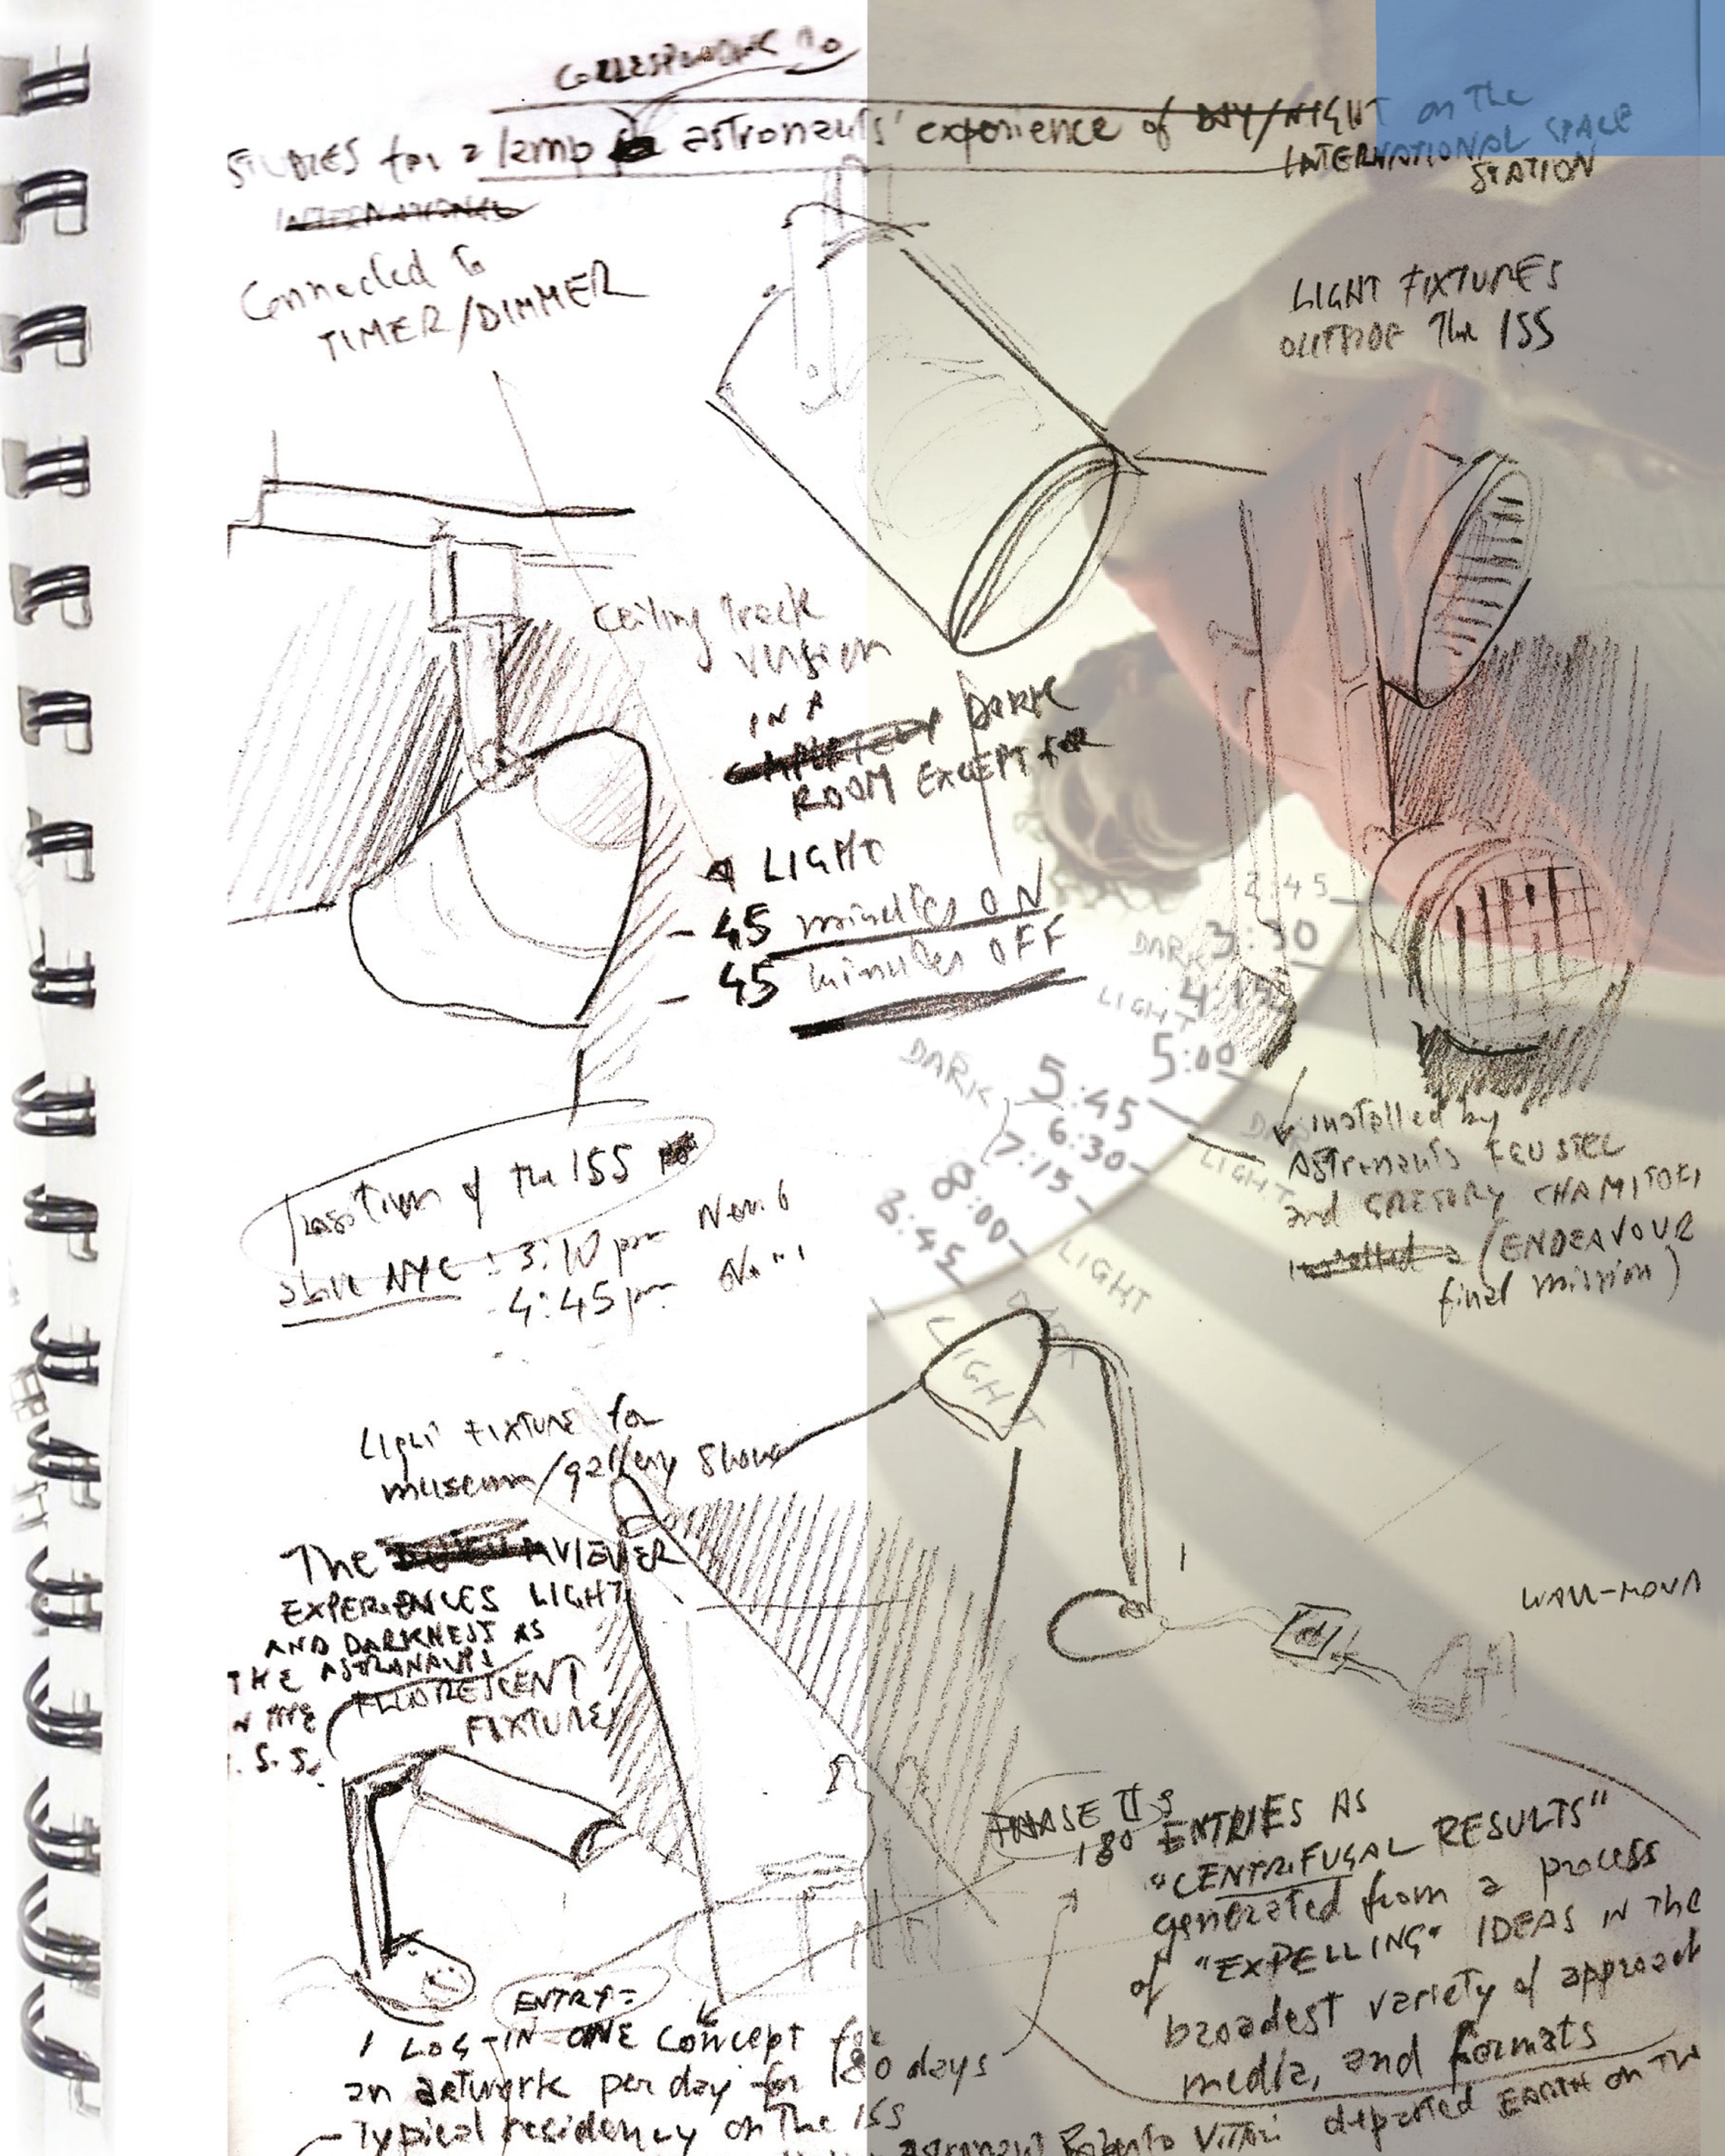 CORRESPONDING TO
STUDIES for a lamp astronauts' experience of DAY/NIGHT on the
INTERNATIONAL SPACE
STATION
INTERNATIONAL
Connected to
TIMER/DIMMER
LIGHT FIXTURES
OUTSIDE The ISS
Ceiling Track
version
IN A
COMPLETELY DARK
ROOM EXCEPT for
A LIGHT
- 45 minutes ON
- 45 minutes OFF
2:45
DARK 3:30
LIGHT 4:15
5:00
DARK 5:45
6:30
7:15
8:00
8:45
DARK
LIGHT
LIGHT
DARK
LIGHT
installed by
Astronauts FEUSTEL
and GREGORY CHAMITOFF
installed a (ENDEAVOUR
final mission)
Position of the ISS
above NYC : 3:10 pm Nov 6
4:45 pm
Light FIXTURE for
museum/gallery Show
The VIEWER
EXPERIENCES LIGHT
AND DARKNESS AS
THE ASTRONAUTS
IN THE
I.S.S.
FLUORESCENT
FIXTURES
WALL-MOUN
PHASE II:
180 ENTRIES AS
"CENTRIFUGAL RESULTS"
generated from a process
of "EXPELLING" IDEAS IN The
broadest variety of approach
media, and formats
ENTRY =
1 LOG-IN ONE CONCEPT for
an artwork per day for 180 days
- Typical residency on the ISS
astronaut Roberto Vittori departed EARTH on The